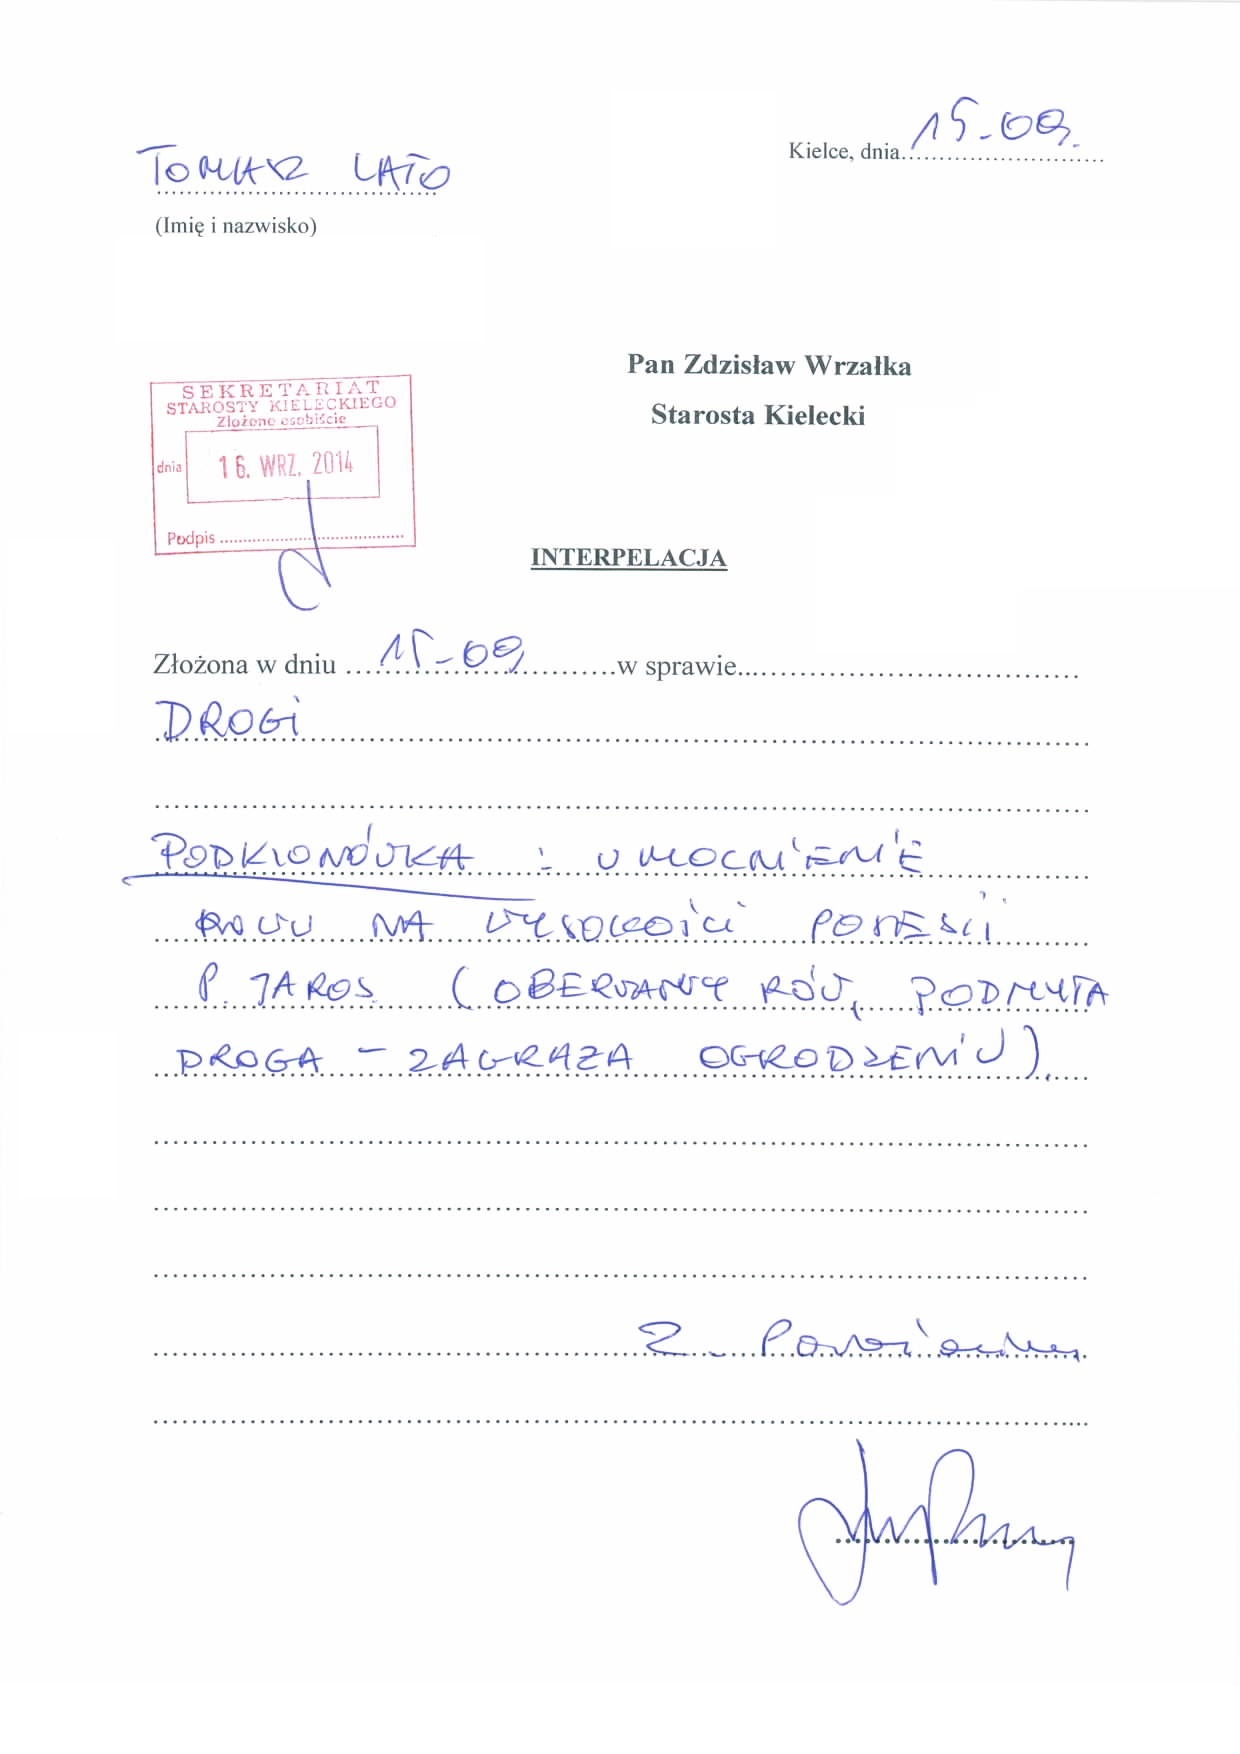 Kielce, dnia 15-09.
TOMASZ LATO
(Imię i nazwisko)
Pan Zdzisław Wrzałka
Starosta Kielecki
SEKRETARIAT
STAROSTY KIELECKIEGO
Złożone osobiście
dnia 16. WRZ. 2014
Podpis
INTERPELACJA
Złożona w dniu 15-09 w sprawie
DROGI
PODKLONÓWKA : UMOCNIENIE
ROWU NA WYSOKOŚCI POSESJI
P. JAROS (OBERWANY RÓW, PODMYTA
DROGA – ZAGRAŻA OGRODZENIU).
Z Poważaniem